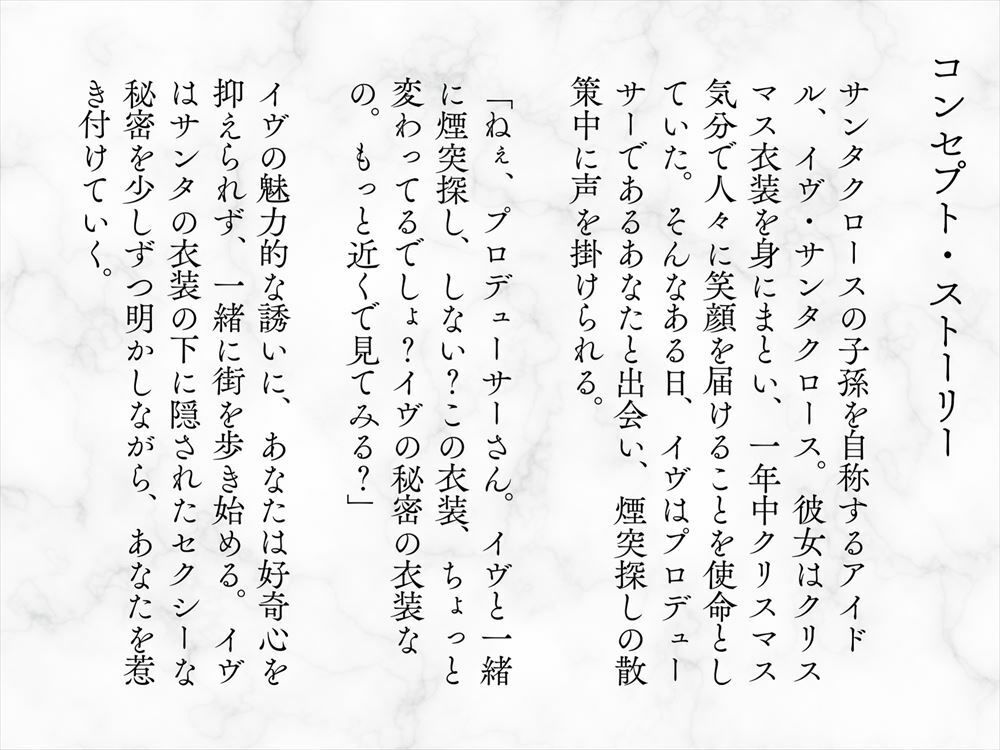 コンセプト・ストーリー
サンタクロースの子孫を自称するアイド
ル、イヴ・サンタクロース。彼女はクリス
マス衣装を身にまとい、一年中クリスマス
気分で人々に笑顔を届けることを使命とし
ていた。そんなある日、イヴはプロデュー
サーであるあなたと出会い、煙突探しの散
策中に声を掛けられる。
「ねぇ、プロデューサーさん。イヴと一緒
に煙突探し、しない？この衣装、ちょっと
変わってるでしょ？イヴの秘密の衣装な
の。もっと近くで見てみる？」
イヴの魅力的な誘いに、あなたは好奇心を
抑えられず、一緒に街を歩き始める。イヴ
はサンタの衣装の下に隠されたセクシーな
秘密を少しずつ明かしながら、あなたを惹
き付けていく。